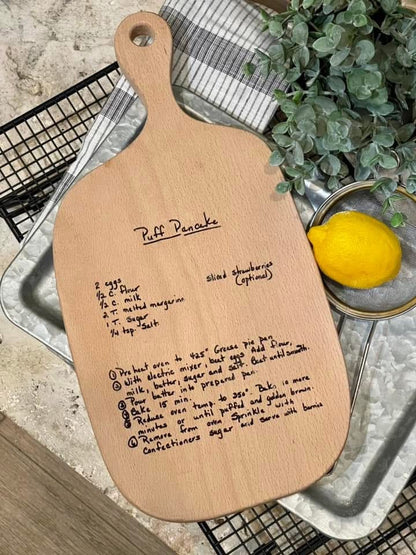 Puff Pancake
2 eggs
1/2 C. flour
1/2 C. milk
2 T. melted margarine
1 T. Sugar
1/4 tsp. Salt
sliced strawberries
(optional)
① Preheat oven to 425° Grease pie pan
② With electric mixer, beat eggs Add flour,
milk, butter, sugar and salt. Beat until smooth.
③ Pour batter into prepared pan.
④ Bake 15 min.
⑤ Reduce oven temp to 350° Bake 10 more
minutes or until puffed and golden brown.
⑥ Remove from oven Sprinkle with
Confectioners sugar and serve with berries